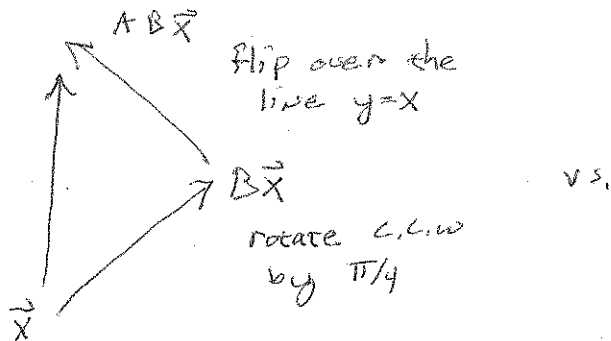 A B x⃗
flip over the
line y=x
Bx⃗
vs.
rotate c.c.w
by π/4
x⃗